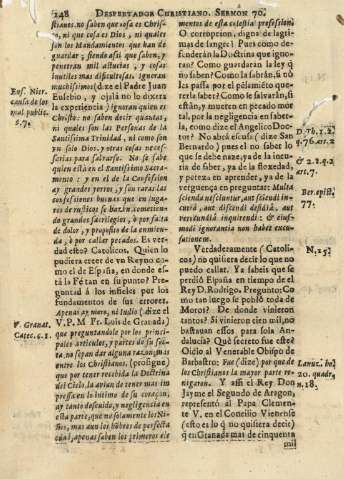 248 DESPERTADOR CHRISTIANO. SERMON 70.
stianos no saben que cosa es Christo,
ni que cosa es Dios, y ni quales
son los Mandamientos que han de
guardar, siendo assi que saben, y
penetran mil astucias, y colas
inutiles dificultosas. Ignoran
muchissimos (dize el Padre Juan
Eusebio, y ojalà no dixera
la experiencia) ignoran quien es
Christo: no saben dezir quantas,
ni quales son las Personas de la
Santissima Trinidad, ni como son
un solo Dios, y otras cosas necessarias
para salvarse. No se sabe
quien està en el Santissimo Sacramento:
y en el de la Confession
ay grandes yerros, y son raras las
confessiones buenas que en lugares
de rusticos se hazen, cometiendo
grandes sacrilegios, ò por falta
de dolor, y proposito de la enmienda,
ò por callar pecados. Es verdad
esto? Catolicos. Quien lo
pudiera creer de un Reyno como
el de España, en donde està
la Fè tan en su punto? Preguntad
à los infieles por los
fundamentos de sus errores.
Apenas ay moro, ni Iudio (dize el
V. P. M. Fr. Luis de Granada)
que preguntandole por los principales
articulos, y partes de su secta,
no sepan dar alguna razon; mas
entre los Christianos, (prosigue)
que por tener recebida la Doctrina
del Cielo, la avian de tener mas impressa
en lo intimo de su coraçon,
ay tanto descuido, y negligencia en
esta parte, que no solamente los Niños,
mas aun los hõbres de perfecta
edad, apenas saben los primeros elementos
Eus. Nier.
causa de los
mal. publi.
c.7.
V. Granat.
Catec. c.1.
mentos de esta celestial profession.
O corrupcion, digna de lagrimas
de sangre! Pues como defenderàn
la Doctrina que ignoran?
Como guardaràn la ley q̃
no saben? Como la sabràn, si nò
les passa por el pẽsamiẽto quererla
saber? Como se salvaràn, si
estàn, y mueren en pecado mortal,
por la negligencia en saberla,
como dize el Angelico Doctor?
No abrà escusa (dize San
Bernardo) pues el no saber lo
que se debe nace, ya de la incuria
de saber, ya de la floxedad,
y pereza en aprender, ya de la
verguença en preguntar: Multa
scienda nesciuntur, aut sciendi incuria,
aut discendi desidia, aut
verecundia inquirendi: & eiusmodi
ignorantia non habet excusationem.
Verdaderamente (Catolicos)
no quisiera decir lo que no
puedo callar. Ya sabeis que se
perdiò España en tiempo de el
Rey D. Rodrigo. Pregunto: Como
tan luego se poblò toda de
Moros? De donde vinieron
tantos? Si vinieron cien mil, no
bastavan essos para sola Andalucia?
Què secreto fue este?
Oidlo al Venerable Obispo de
Barbastro: Fue (dize) que de
los Christianos la mayor parte renegaron.
Y assi el Rey Don
Jayme el Segundo de Aragon,
representò al Papa Clemente
V. en el Concilio Vienense
(esto es lo q̃ no quisiera decir)
q̃ en Granada mas de cinquenta
mil
D. Th. 1.2.
q.76. art.2.
& 2.2. q.2.
art.7.
Ber. epist.
77.
N. 25.
Lanuz. ho.
20. quadr.
n.18.